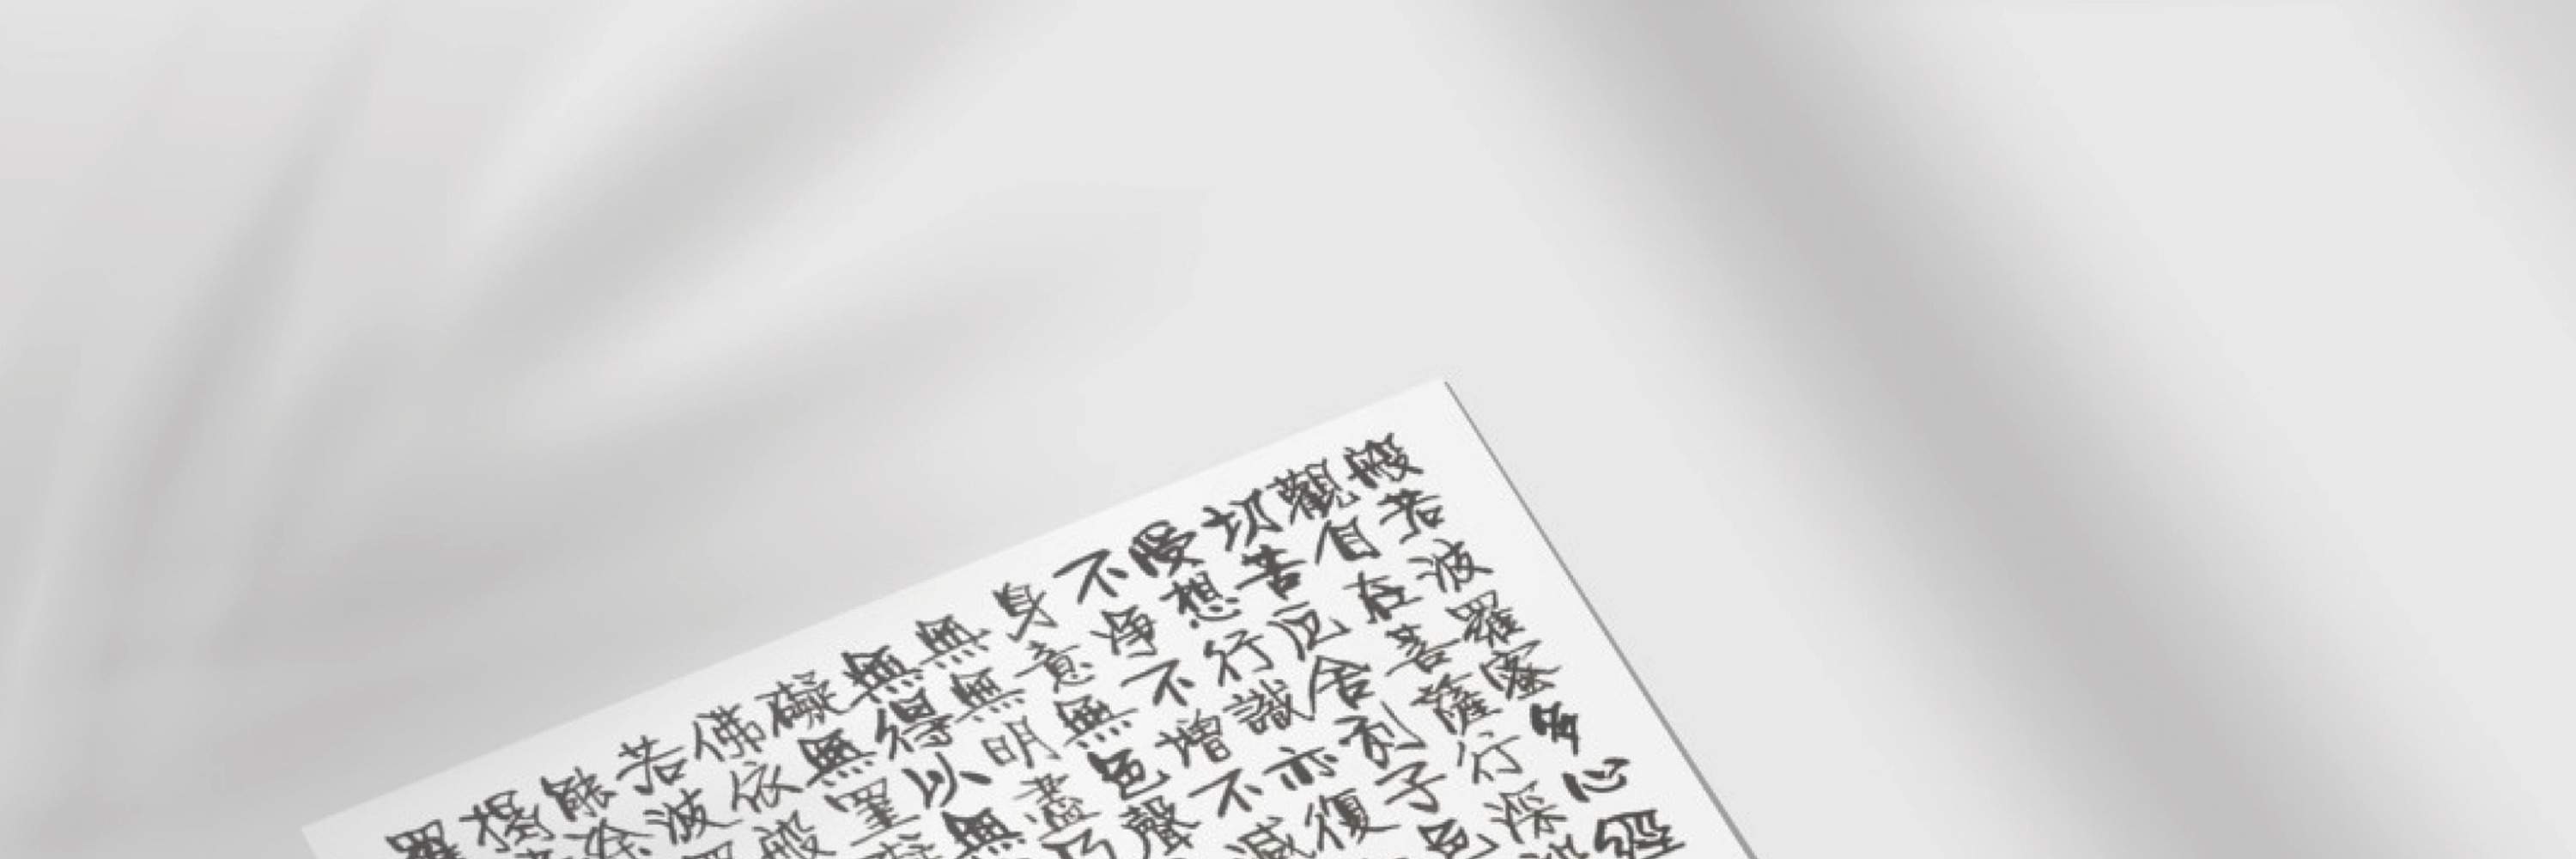 般若波羅蜜多心經
觀自在菩薩行深般
切苦厄舍利子色
受想行識亦復
不淨不增不減
身意無色聲
無無明盡乃
無得以無
礙無罣礙
佛依般
若波羅
能除
揭
羅